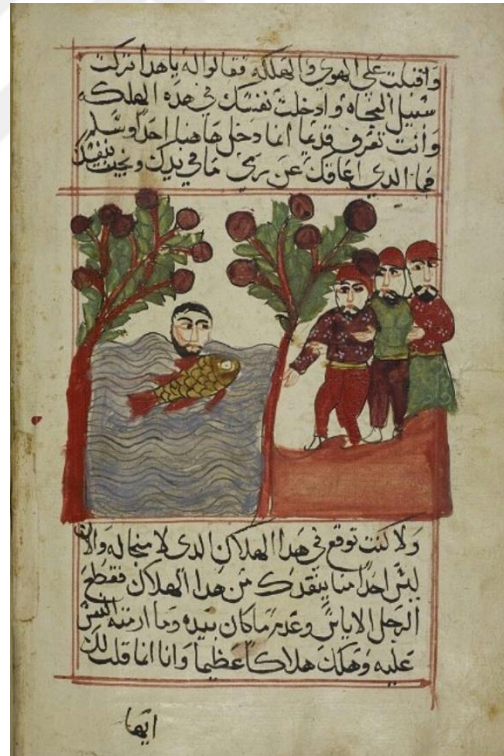 واقبلت على الهوي والهلكه فقالوا له يا هدا تركت
سبيل النجاه وادخلت نفسك في هده الهلكه
وانت تعرف قديما انما دخل هاهنا احدا وسلم
فما الدي اعاقك عن رمي ما في يدك وتجيب بنفسك
ولا كنت توقع في هدا الهلاك الدي لا منجا له والان
ليس احدا منا ينقدك من هدا الهلاك فقطع
الرجل الاياس وعدم ما كان بيده وما
عليه وهلك هلاكا عظيما وانا انما قلت لك
ايها